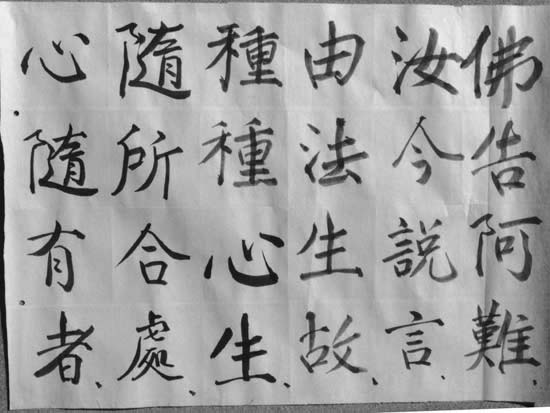 佛告阿難、
汝今說言、
由法生故、
種種心生、
隨所合處、
心隨有者、